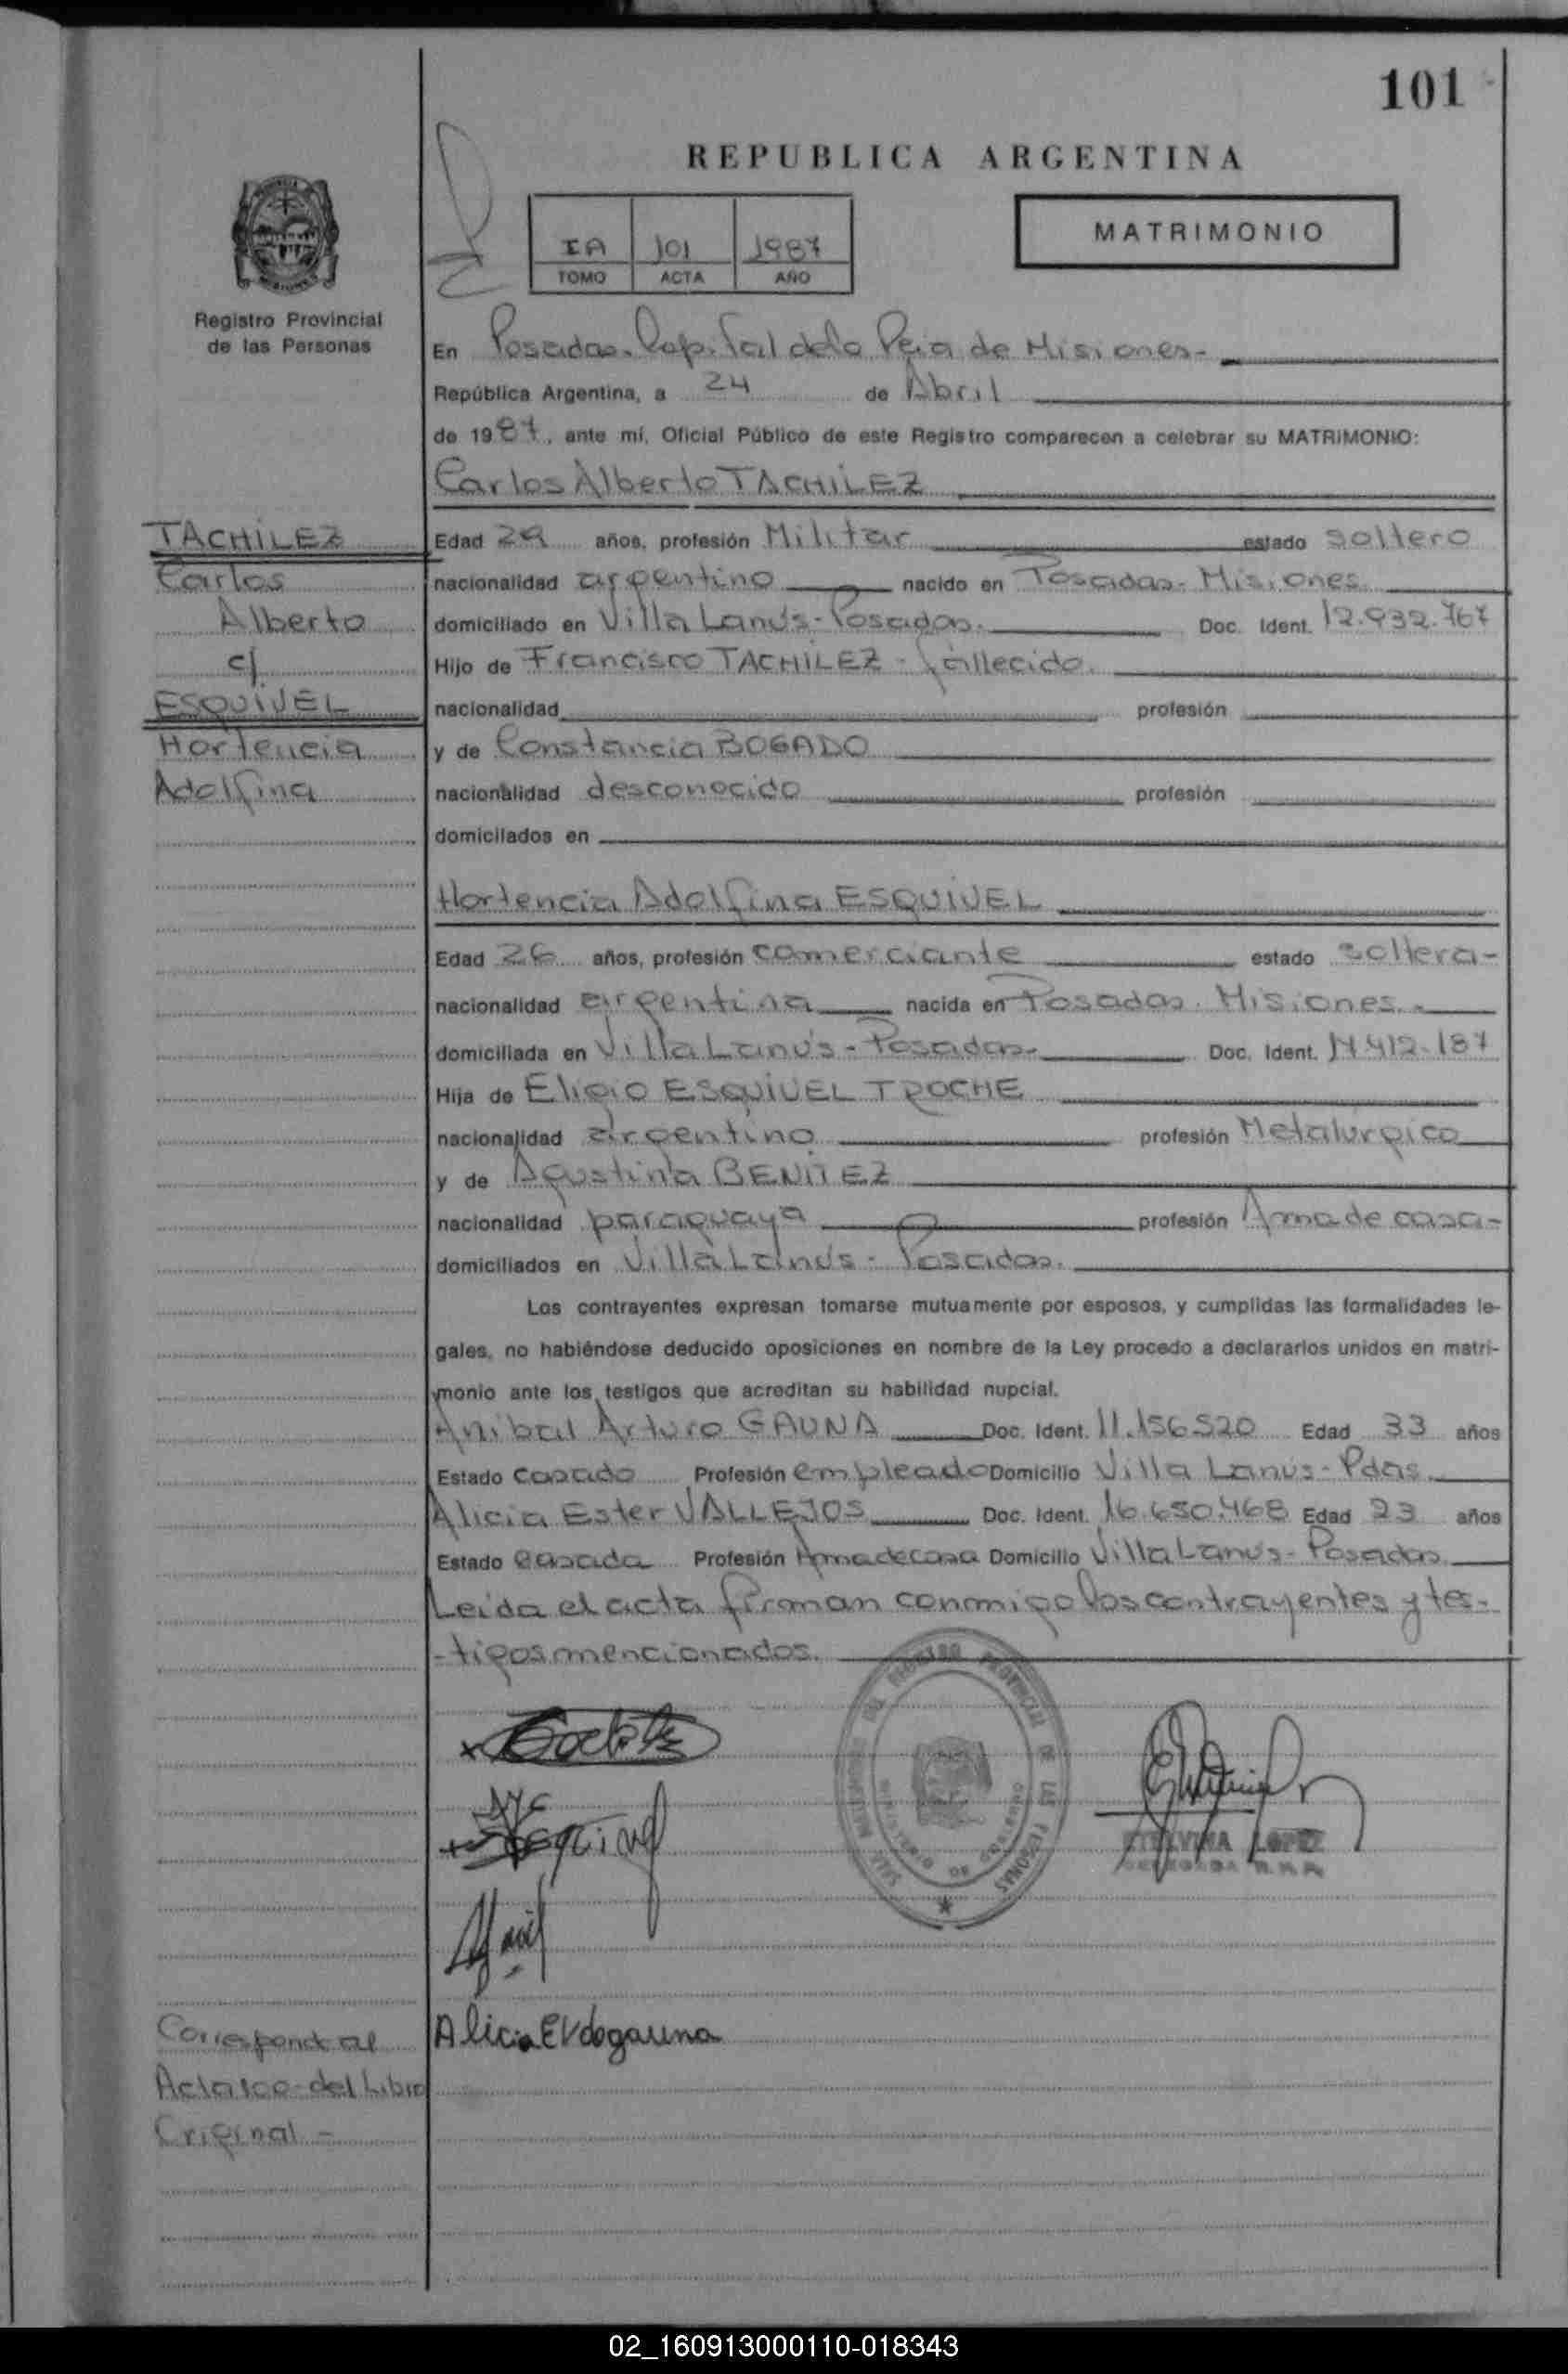 101
REPUBLICA ARGENTINA
IA 101 1987
TOMO ACTA AÑO
MATRIMONIO
Registro Provincial
de las Personas
En Posadas. Capital de la Pcia de Misiones-
República Argentina, a 24 de Abril
de 1987, ante mí, Oficial Público de este Registro comparecen a celebrar su MATRIMONIO:
Carlos Alberto TACHILEZ
TACHILEZ
Carlos
Alberto
c/
ESQUIVEL
Hortencia
Adolfina
Edad 29 años, profesión Militar estado soltero
nacionalidad argentino nacido en Posadas- Misiones
domiciliado en Villa Lanús-Posadas. Doc. Ident. 12.932.767
Hijo de Francisco TACHILEZ - fallecido.
nacionalidad profesión
y de Constancia BOGADO
nacionalidad desconocido profesión
domicilados en
Hortencia Adolfina ESQUIVEL
Edad 26 años, profesión comerciante estado soltera-
nacionalidad argentina nacida en Posadas. Misiones.-
domiciliada en Villa Lanús-Posadas- Doc. Ident. 14.412.187
Hija de Eligio ESQUIVEL TROCHE
nacionalidad argentino profesión Metalúrgico
y de Agustina BENITEZ
nacionalidad paraguaya profesión Ama de casa-
domiciliados en Villa Lanús- Posadas.
Los contrayentes expresan tomarse mutuamente por esposos, y cumplidas las formalidades le-
gales, no habiéndose deducido oposiciones en nombre de la Ley procedo a declararlos unidos en matri-
monio ante los testigos que acreditan su habilidad nupcial.
Anibal Arturo GAUNA Doc. Ident. 11.156.520 Edad 33 años
Estado casado Profesión empleado Domicilio Villa Lanus-Pdas.
Alicia Ester VALLEJOS Doc. Ident. 16.650.468 Edad 23 años
Estado casada Profesión Ama de casa Domicilio Villa Lanús- Posadas
Leida el acta firman conmigo los contrayentes y tes-
-tigos mencionados.
REGISTRO PROVINCIAL DE LAS PERSONAS
MINISTERIO DE GOBIERNO
ETELVINA LOPEZ
DELEGADA R.P.P.
Alicia EV de gauna
Correspond al
Acta 100- del Libro
Original -
02_160913000110-018343